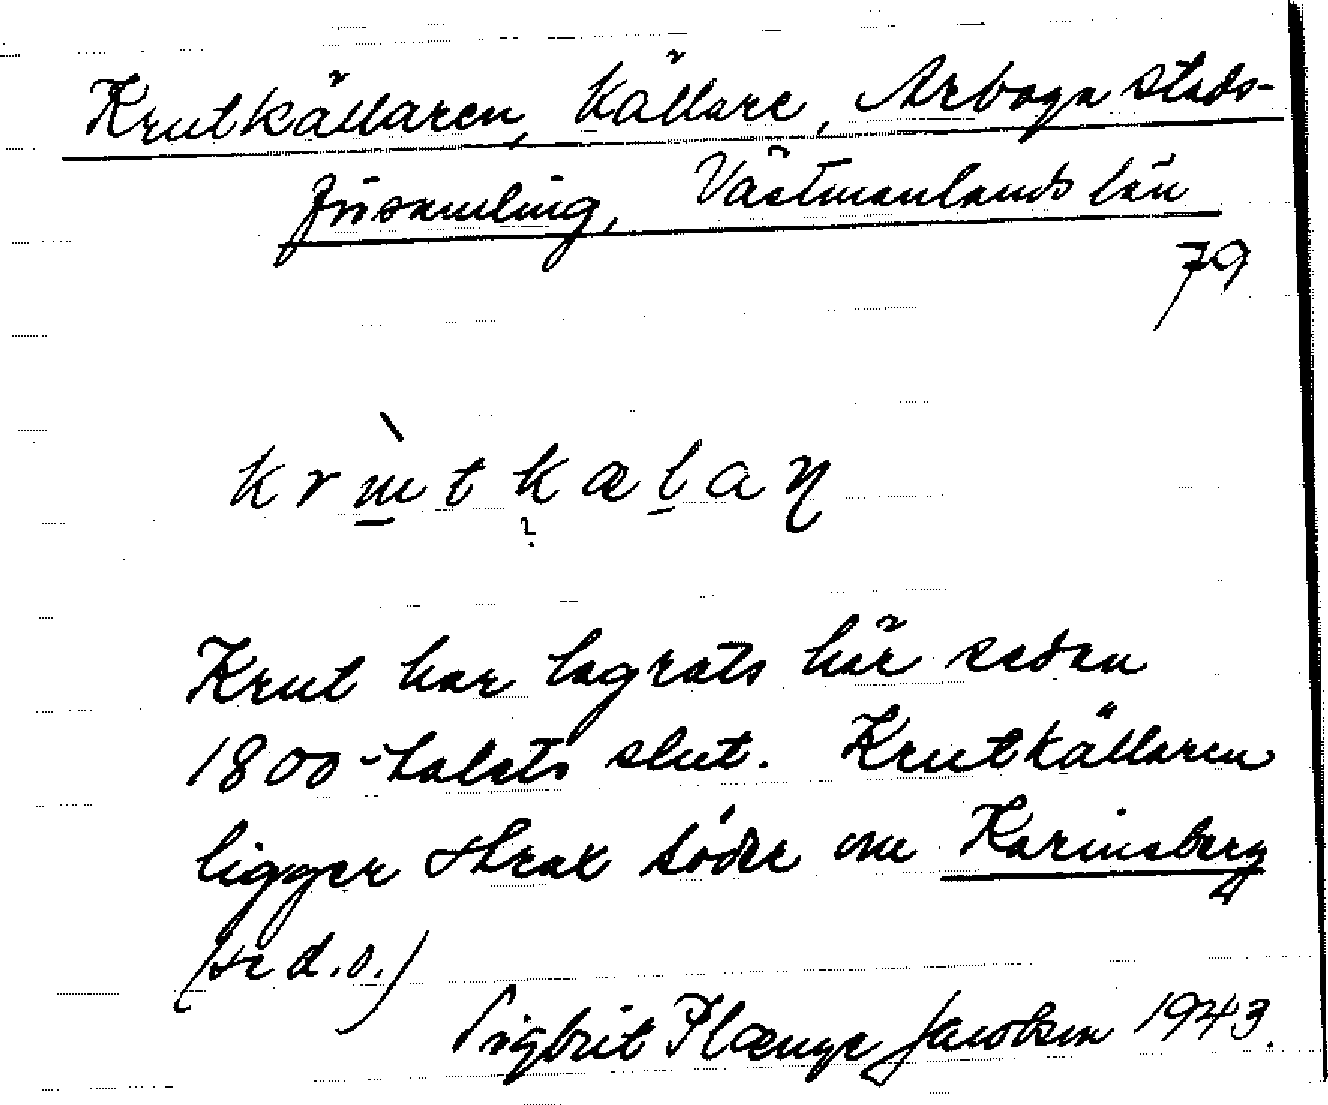 Krutkällaren, källare, Arboga stads-
församling, Västmanlands län
79
Krut har lagrats här sedan
1800-talets slut. Krutkällaren
ligger strax söder om Karinsberg
(se d.o.)
Sigbrit Plænge Jacobson 1943.